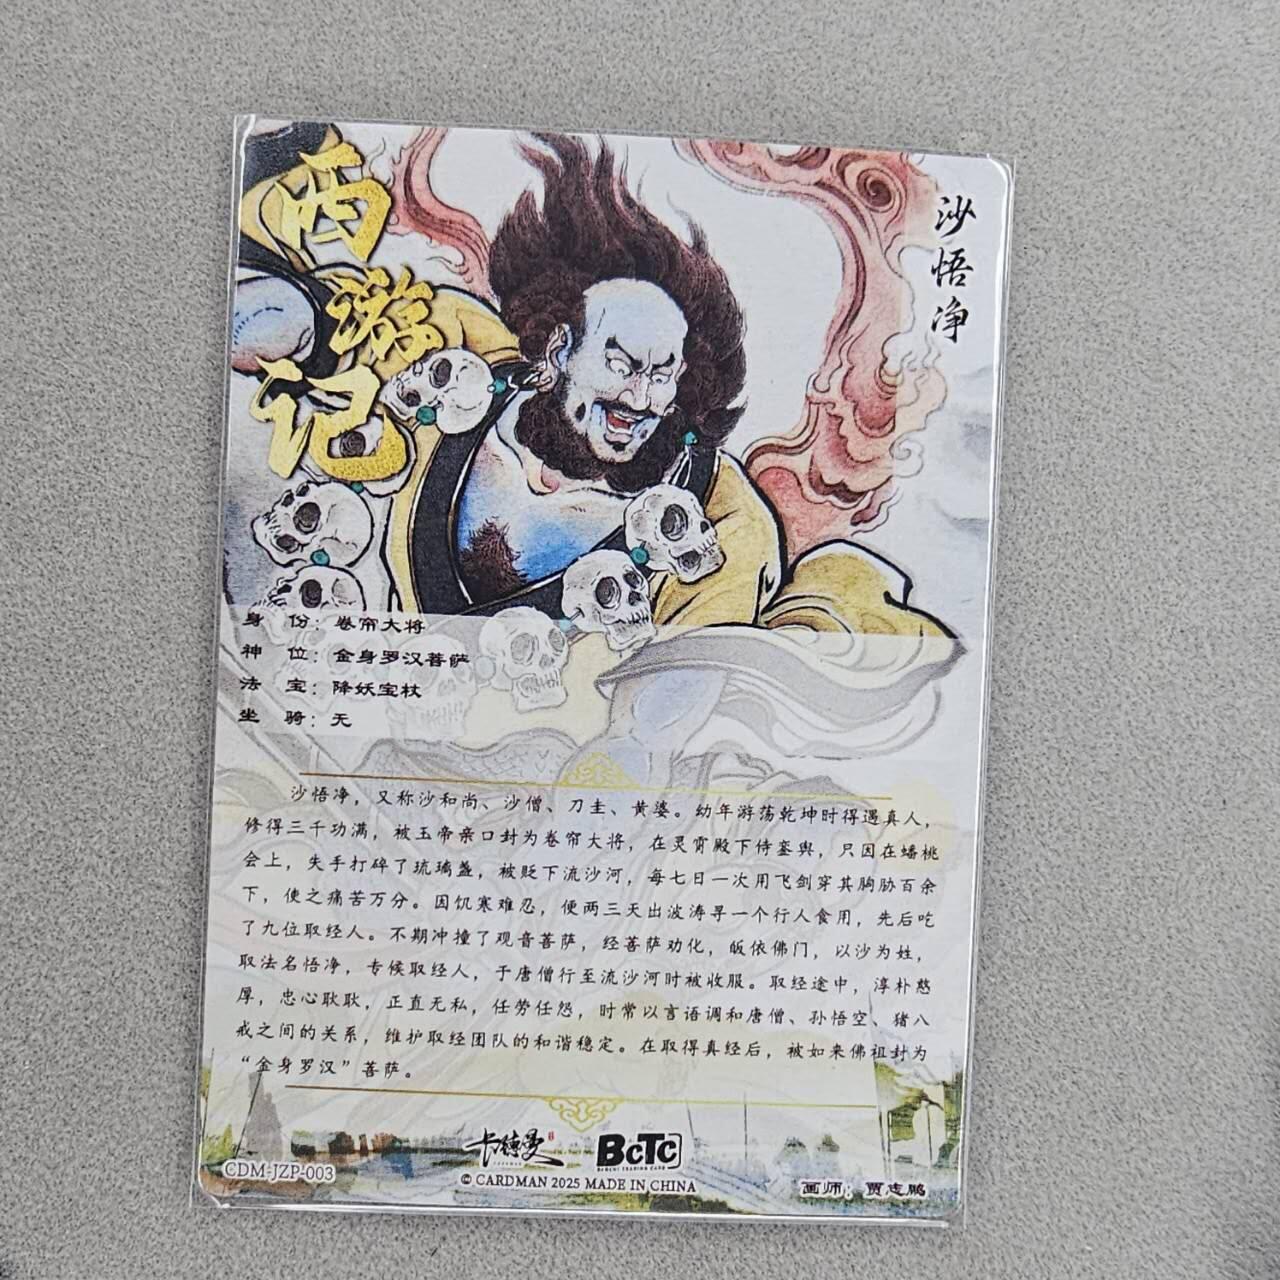 西游记
沙悟净
身份：卷帘大将
神位：金身罗汉菩萨
法宝：降妖宝杖
坐骑：无
沙悟净，又称沙和尚、沙僧、刀圭、黄婆。幼年游荡乾坤时得遇真人，
修得三千功满，被玉帝亲口封为卷帘大将，在灵霄殿下侍銮舆，只因在蟠桃
会上，失手打碎了琉璃盏，被贬下流沙河，每七日一次用飞剑穿其胸胁百余
下，使之痛苦万分。因饥寒难忍，便两三天出波涛寻一个行人食用，先后吃
了九位取经人。不期冲撞了观音菩萨，经菩萨劝化，皈依佛门，以沙为姓，
取法名悟净，专候取经人，于唐僧行至流沙河时被收服。取经途中，淳朴憨
厚，忠心耿耿，正直无私，任劳任怨，时常以言语调和唐僧、孙悟空、猪八
戒之间的关系，维护取经团队的和谐稳定。在取得真经后，被如来佛祖封为
“金身罗汉”菩萨。
卡德曼
BCTC
CDM-JZP-003
© CARDMAN 2025 MADE IN CHINA
画师：贾志鹏